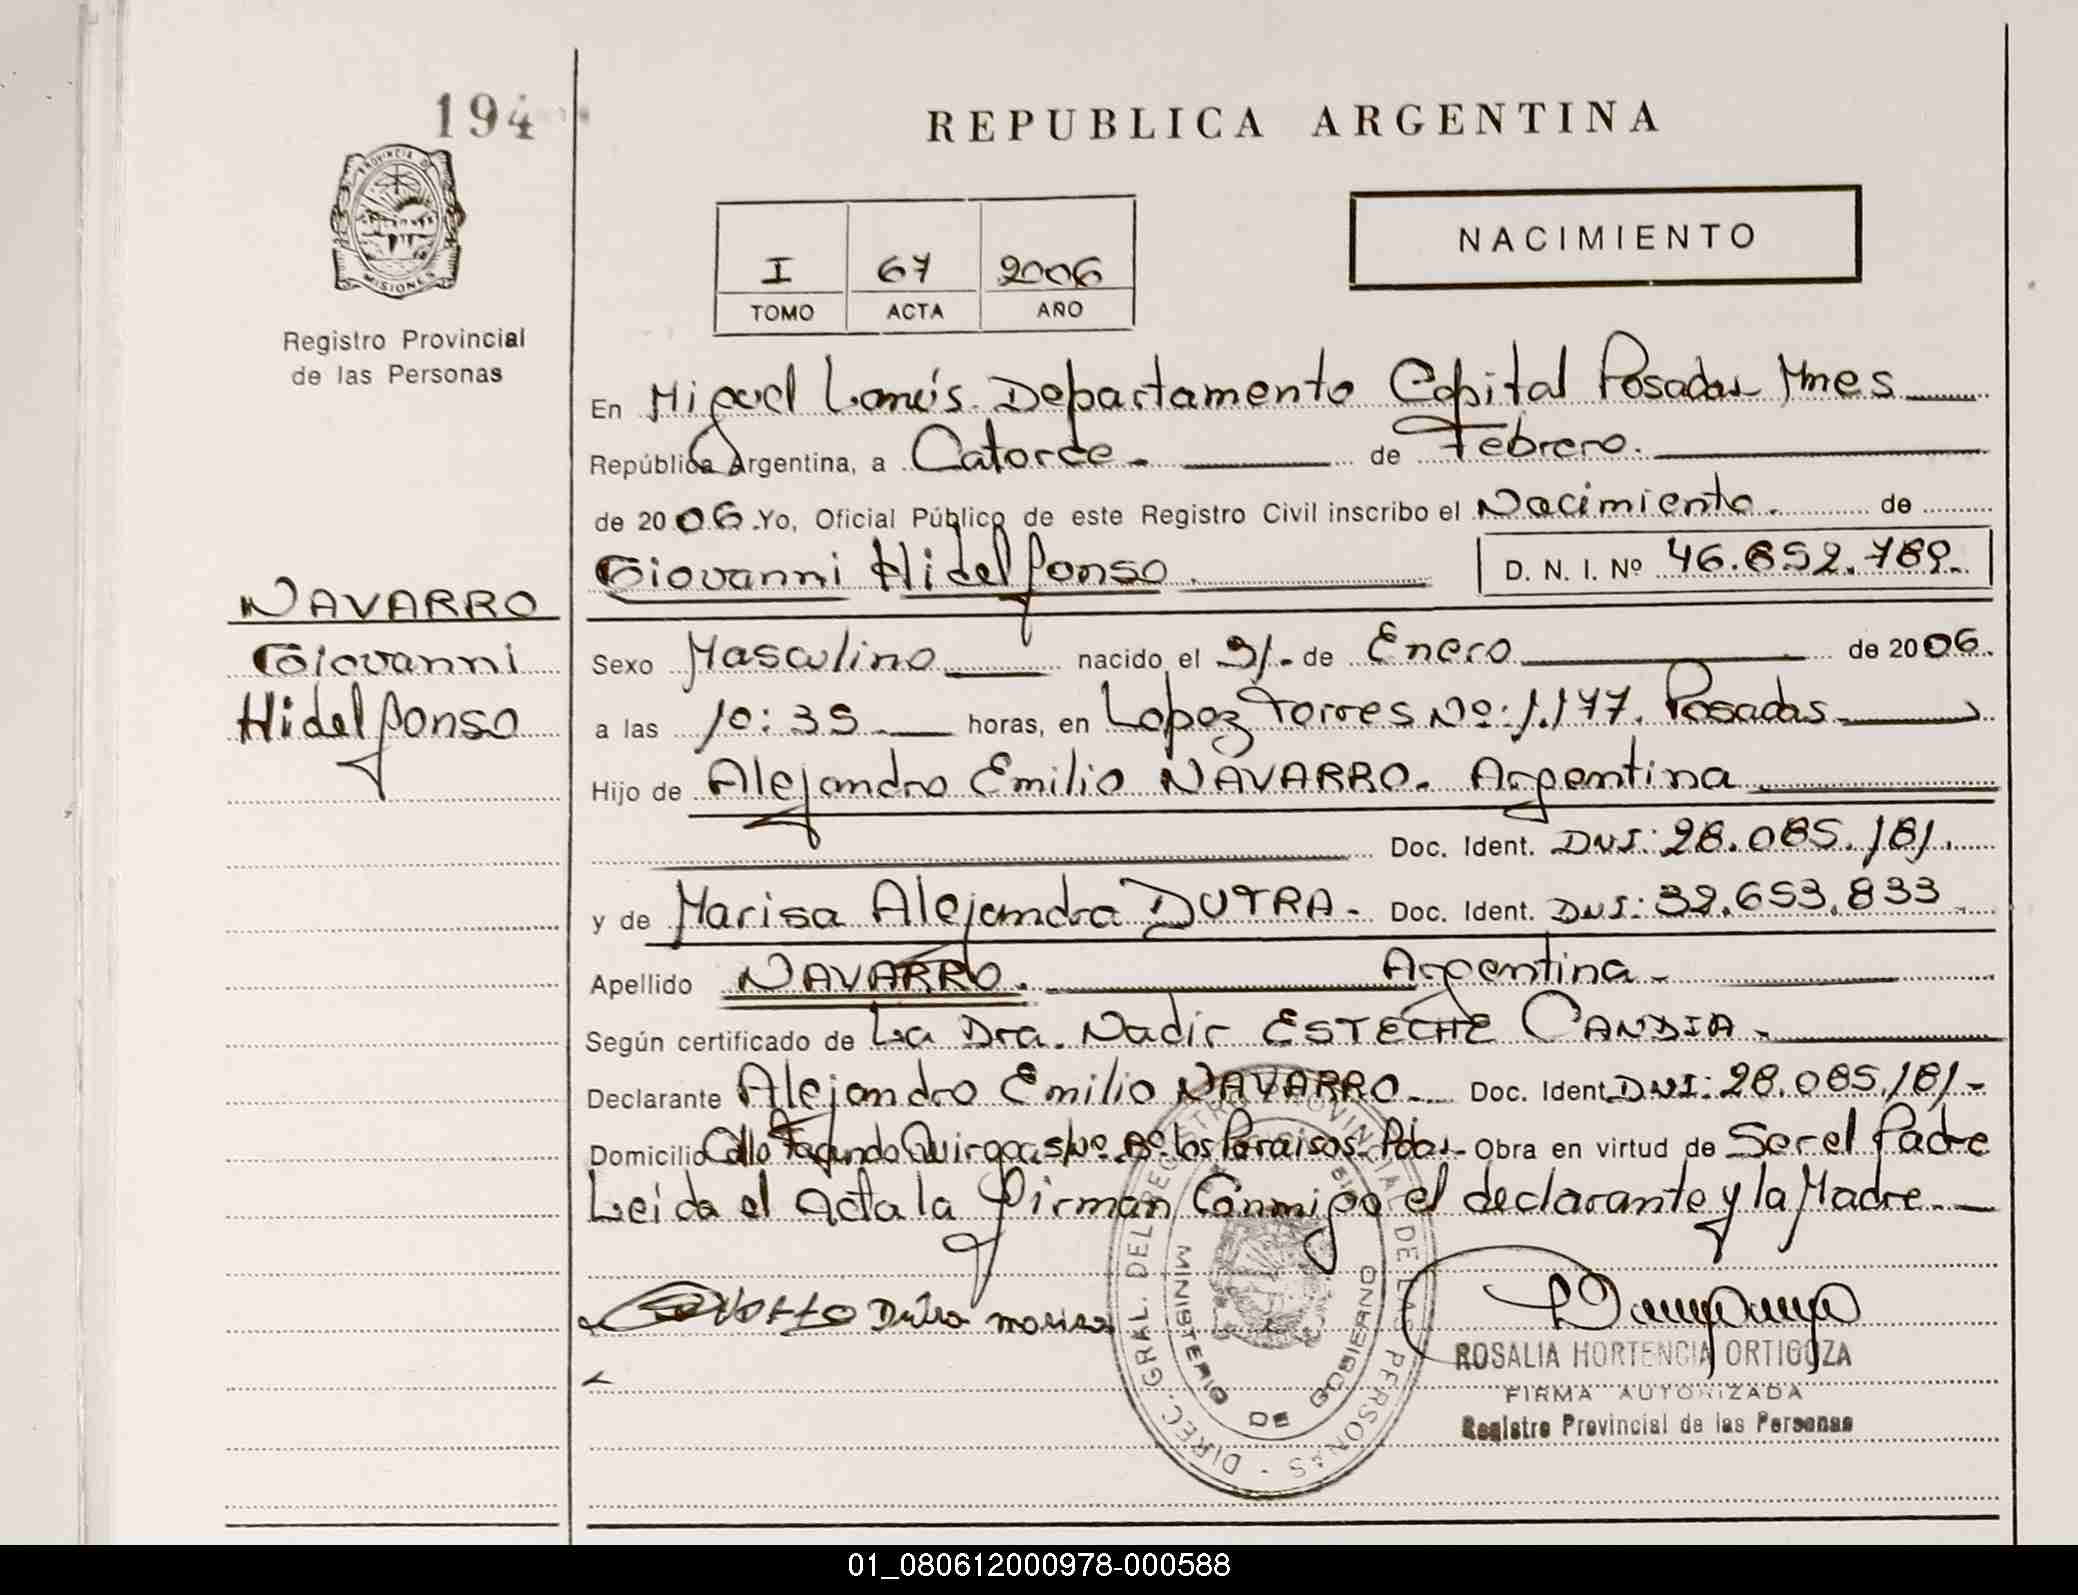 194
REPUBLICA ARGENTINA
PROVINCIA D
MISIONES
Registro Provincial
de las Personas
I 67 2006
TOMO ACTA AÑO
NACIMIENTO
En Miguel Lanús. Departamento Capital Posadas Mnes
República Argentina, a Catorce. de Febrero.
de 2006. Yo, Oficial Público de este Registro Civil inscribo el Nacimiento. de
Giovanni Hidelfonso. D. N. I. Nº 46.852.789.
NAVARRO
Giovanni
Hidelfonso
Sexo Masculino nacido el 31. de Enero de 2006.
a las 10:35 horas, en Lopez Torres Nº: 1.177. Posadas
Hijo de Alejandro Emilio NAVARRO. Argentina
Doc. Ident. DNI: 28.085.181.
y de Marisa Alejandra DUTRA. Doc. Ident. DNI: 32.653.833.
Apellido NAVARRO. Argentina.
Según certificado de La Dra. Nadir ESTECHE CANDIA.
Declarante Alejandro Emilio NAVARRO. Doc. Ident. DNI: 28.085.181.
Domicilio Calle Facundo Quiroga s/Nº. Bº. los Paraisos. Pdas. Obra en virtud de Ser el Padre
Leída el Acta la firman Conmigo el declarante y la Madre.
Dutra marisa
DIREC. GRAL. DEL REGISTRO PROVINCIAL DE LAS PERSONAS
MINISTERIO DE GOBIERNO
ROSALIA HORTENCIA ORTIGOZA
FIRMA AUTORIZADA
Registro Provincial de las Personas
01_080612000978-000588